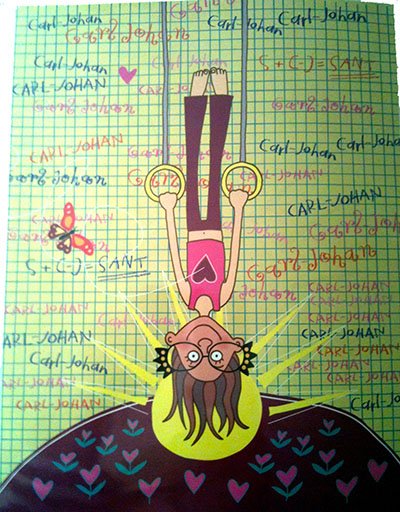 Carl-Johan
Carl-Johan
Carl-Johan
Carl Johan
Carl Johan
S + C-J = SANT
Carl-Johan
CARL-JOHAN
Carl Johan
Carl Johan
CARL-JOHAN
Carl-Johan
Carl-Johan
Carl Johan
Carl Johan
CARL-JOHAN
CARL-JOHAN
Carl Johan
Carl Johan
S + C-J = SANT
Carl Johan
CARL-JOHAN
CARL-JOHAN
CARL-JOHAN
CARL-JOHAN
CARL-JOHAN
Carl-Johan
CARL-JOHAN
CARL-JOHAN
CARL-JOHAN